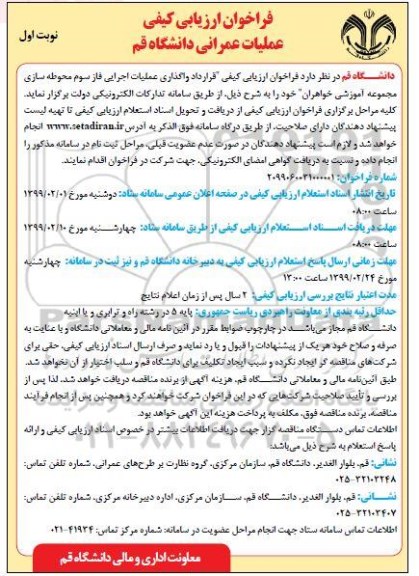 فراخوان ارزیابی کیفی
عملیات عمرانی دانشگاه قم
نوبت اول
دانشگاه قم در نظر دارد فراخوان ارزیابی کیفی "قرارداد واگذاری عملیات اجرایی فاز سوم محوطه سازی
مجموعه آموزشی خواهران" خود را به شرح ذیل، از طریق سامانه تدارکات الکترونیکی دولت برگزار نماید.
کلیه مراحل برگزاری فراخوان ارزیابی کیفی از دریافت و تحویل اسناد استعلام ارزیابی کیفی تا تهیه لیست
پیشنهاد دهندگان دارای صلاحیت، از طریق درگاه سامانه فوق الذکر به آدرس www.setadiran.ir انجام
خواهد شد و لازم است پیشنهاد دهندگان در صورت عدم عضویت قبلی، مراحل ثبت نام در سامانه مذکور را
انجام داده و نسبت به دریافت گواهی امضای الکترونیکی، جهت شرکت در فراخوان اقدام نمایند.
شماره فراخوان: ۲۰۹۹۰۶۰۰۳۱۰۰۰۰۰۱
تاریخ انتشار اسناد استعلام ارزیابی کیفی در صفحه اعلان عمومی سامانه ستاد: دوشنبه مورخ ۱۳۹۹/۰۲/۰۱
ساعت ۰۸:۰۰
مهلت دریافت اسناد استعلام ارزیابی کیفی از طریق سامانه ستاد: چهارشنبه مورخ ۱۳۹۹/۰۲/۱۰
ساعت ۰۸:۰۰
مهلت زمانی ارسال پاسخ استعلام ارزیابی کیفی به دبیرخانه دانشگاه قم و نیز ثبت در سامانه: چهارشنبه
مورخ ۱۳۹۹/۰۲/۲۴ ساعت ۱۳:۰۰
مدت اعتبار نتایج بررسی ارزیابی کیفی: ۲ سال پس از زمان اعلام نتایج
حداقل رتبه بندی از معاونت راهبردی ریاست جمهوری: پایه ۵ در رشته راه و ترابری و یا ابنیه
دانشگاه قم مجاز می‌باشد در چارچوب ضوابط مقرر در آئین نامه مالی و معاملاتی دانشگاه و با عنایت به
صرفه و صلاح خود هر یک از پیشنهادات را قبول و یا رد نماید و صرف ارسال اسناد ارزیابی کیفی، حقی برای
شرکت‌های مناقصه گر ایجاد نکرده و سبب ایجاد تکلیف برای دانشگاه قم و سلب اختیار از آن نخواهد شد.
طبق آئین‌نامه مالی و معاملاتی دانشگاه قم، هزینه آگهی از برنده مناقصه دریافت خواهد شد، لذا پس از
بررسی و تأیید صلاحیت شرکت‌هایی که در این فراخوان شرکت خواهند کرد و همچنین پس از انجام فرآیند
مناقصه، برنده مناقصه فوق، مکلف به پرداخت هزینه این آگهی خواهد بود.
اطلاعات تماس دستگاه مناقصه گزار جهت دریافت اطلاعات بیشتر در خصوص اسناد ارزیابی کیفی و ارائه
پاسخ استعلام به شرح ذیل می‌باشد:
نشانی: قم، بلوار الغدیر، دانشگاه قم، سازمان مرکزی، گروه نظارت بر طرح‌های عمرانی، شماره تلفن تماس:
۰۲۵-۳۲۱۰۳۲۴۸
نشانی: قم، بلوار الغدیر، دانشگاه قم، سازمان مرکزی، اداره دبیرخانه مرکزی، شماره تلفن تماس:
۰۲۵-۳۲۱۰۳۴۰۷
اطلاعات تماس سامانه ستاد جهت انجام مراحل عضویت در سامانه: شماره مرکز تماس: ۴۱۹۳۴-۰۲۱
معاونت اداری و مالی دانشگاه قم